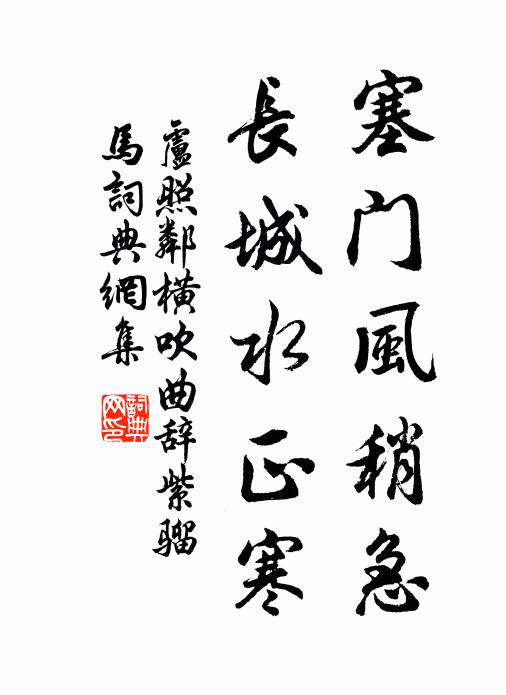 塞门風稍急
長城水正寒
盧照鄰橫吹曲辞紫骝
馬詞典網集
詞典网印